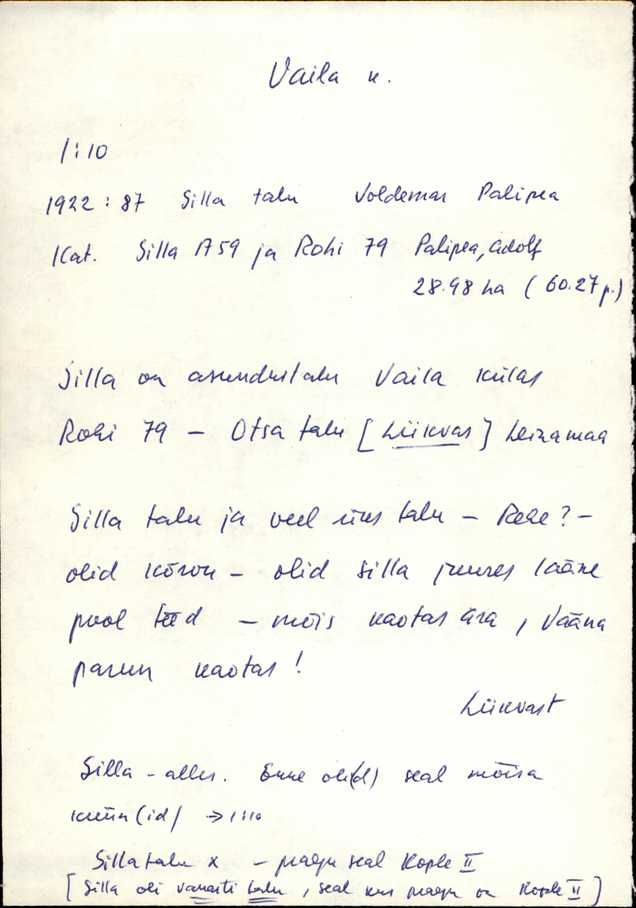 Vaila k.
1:10
1922:87 Silla talu Voldemar Palipea
Kat. Silla A59 ja Rohi 79 Palipea, Adolf
28.98 ha (60.27 p.)
Silla on asundustalu Vaila külas
Rohi 79 – Otsa talu [Liikvas] heinamaa
Silla talu ja veel üks talu – Rehe? –
olid kõrvu – olid silla juures lääne
pool teed – mõis kaotas ära, Vääna
parun kaotas!
Liikvast
Silla – alles. Enne oli(d) seal mõisa
küün(id) → 1:10
Silla talu x – praegu seal Kople II
[Silla oli vanasti talu, seal kus praegu on Kople II]